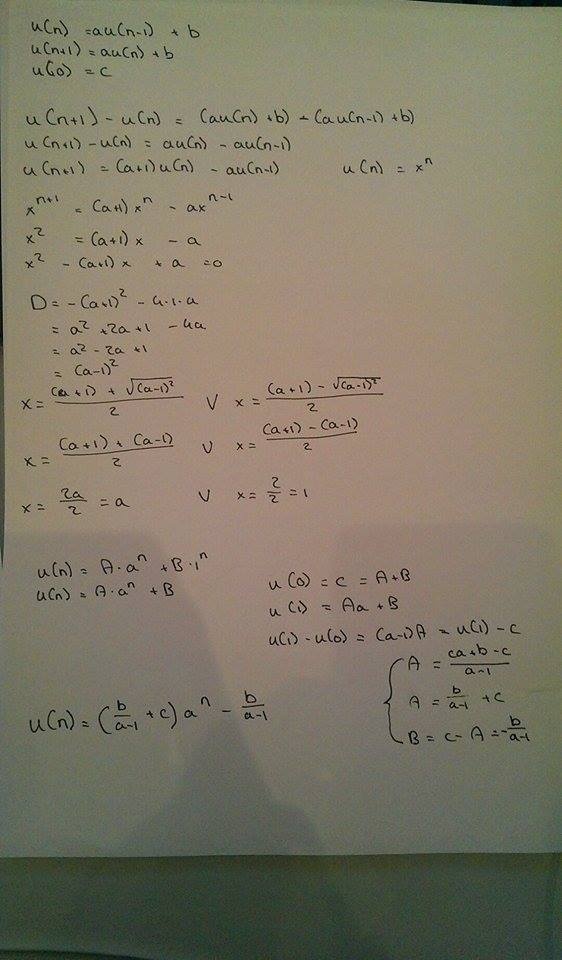 u(n) = au(n-1) + b
u(n+1) = au(n) + b
u(0) = c
u(n+1) - u(n) = (au(n) + b) - (au(n-1) + b)
u(n+1) - u(n) = au(n) - au(n-1)
u(n+1) = (a+1)u(n) - au(n-1) u(n) = x^n
x^{n+1} = (a+1)x^n - ax^{n-1}
x^2 = (a+1)x - a
x^2 - (a+1)x + a = 0
D = -(a+1)^2 - 4·1·a
= a^2 + 2a + 1 - 4a
= a^2 - 2a + 1
= (a-1)^2
x = ((a+1) + √(a-1)^2)/2 V x = ((a+1) - √(a-1)^2)/2
x = ((a+1) + (a-1))/2 V x = ((a+1) - (a-1))/2
x = 2a/2 = a V x = 2/2 = 1
u(n) = A·a^n + B·1^n
u(n) = A·a^n + B
u(0) = c = A+B
u(1) = Aa + B
u(1) - u(0) = (a-1)A = u(1) - c
A = (ca+b-c)/(a-1)
A = b/(a-1) + c
B = c - A = -b/(a-1)
u(n) = (b/(a-1) + c) a^n - b/(a-1)